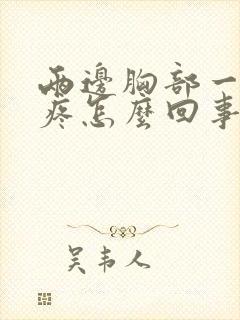 兩邊胸部一
疼怎麼回事
吴韦人